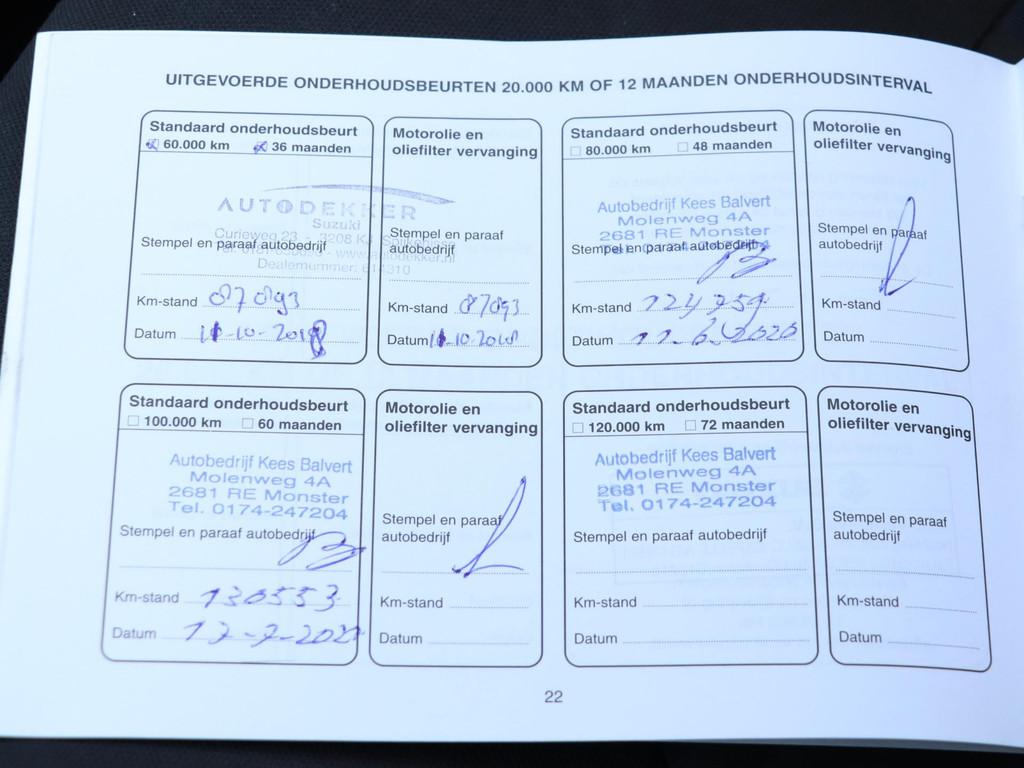 UITGEVOERDE ONDERHOUDSBEURTEN 20.000 KM OF 12 MAANDEN ONDERHOUDSINTERVAL
Standaard onderhoudsbeurt
60.000 km 36 maanden
AUTODEKKER
Suzuki
Curieweg 23 - 3208 KJ Spijkenisse
Stempel en paraaf autobedrijf
www.autodekker.nl
Dealernummer:
Km-stand 87093
Datum 11-10-2018
Motorolie en
oliefilter vervanging
Stempel en paraaf
autobedrijf
Km-stand 87093
Datum 11-10-2018
Standaard onderhoudsbeurt
80.000 km 48 maanden
Autobedrijf Kees Balvert
Molenweg 4A
2681 RE Monster
Stempel en paraaf autobedrijf
Km-stand 124759
Datum 11-6-2020
Motorolie en
oliefilter vervanging
Stempel en paraaf
autobedrijf
Km-stand
Datum
Standaard onderhoudsbeurt
100.000 km 60 maanden
Autobedrijf Kees Balvert
Molenweg 4A
2681 RE Monster
Tel. 0174-247204
Stempel en paraaf autobedrijf
Km-stand 130553
Datum
Motorolie en
oliefilter vervanging
Stempel en paraaf
autobedrijf
Km-stand
Datum
Standaard onderhoudsbeurt
120.000 km 72 maanden
Autobedrijf Kees Balvert
Molenweg 4A
2681 RE Monster
Tel. 0174-247204
Stempel en paraaf autobedrijf
Km-stand
Datum
Motorolie en
oliefilter vervanging
Stempel en paraaf
autobedrijf
Km-stand
Datum
22